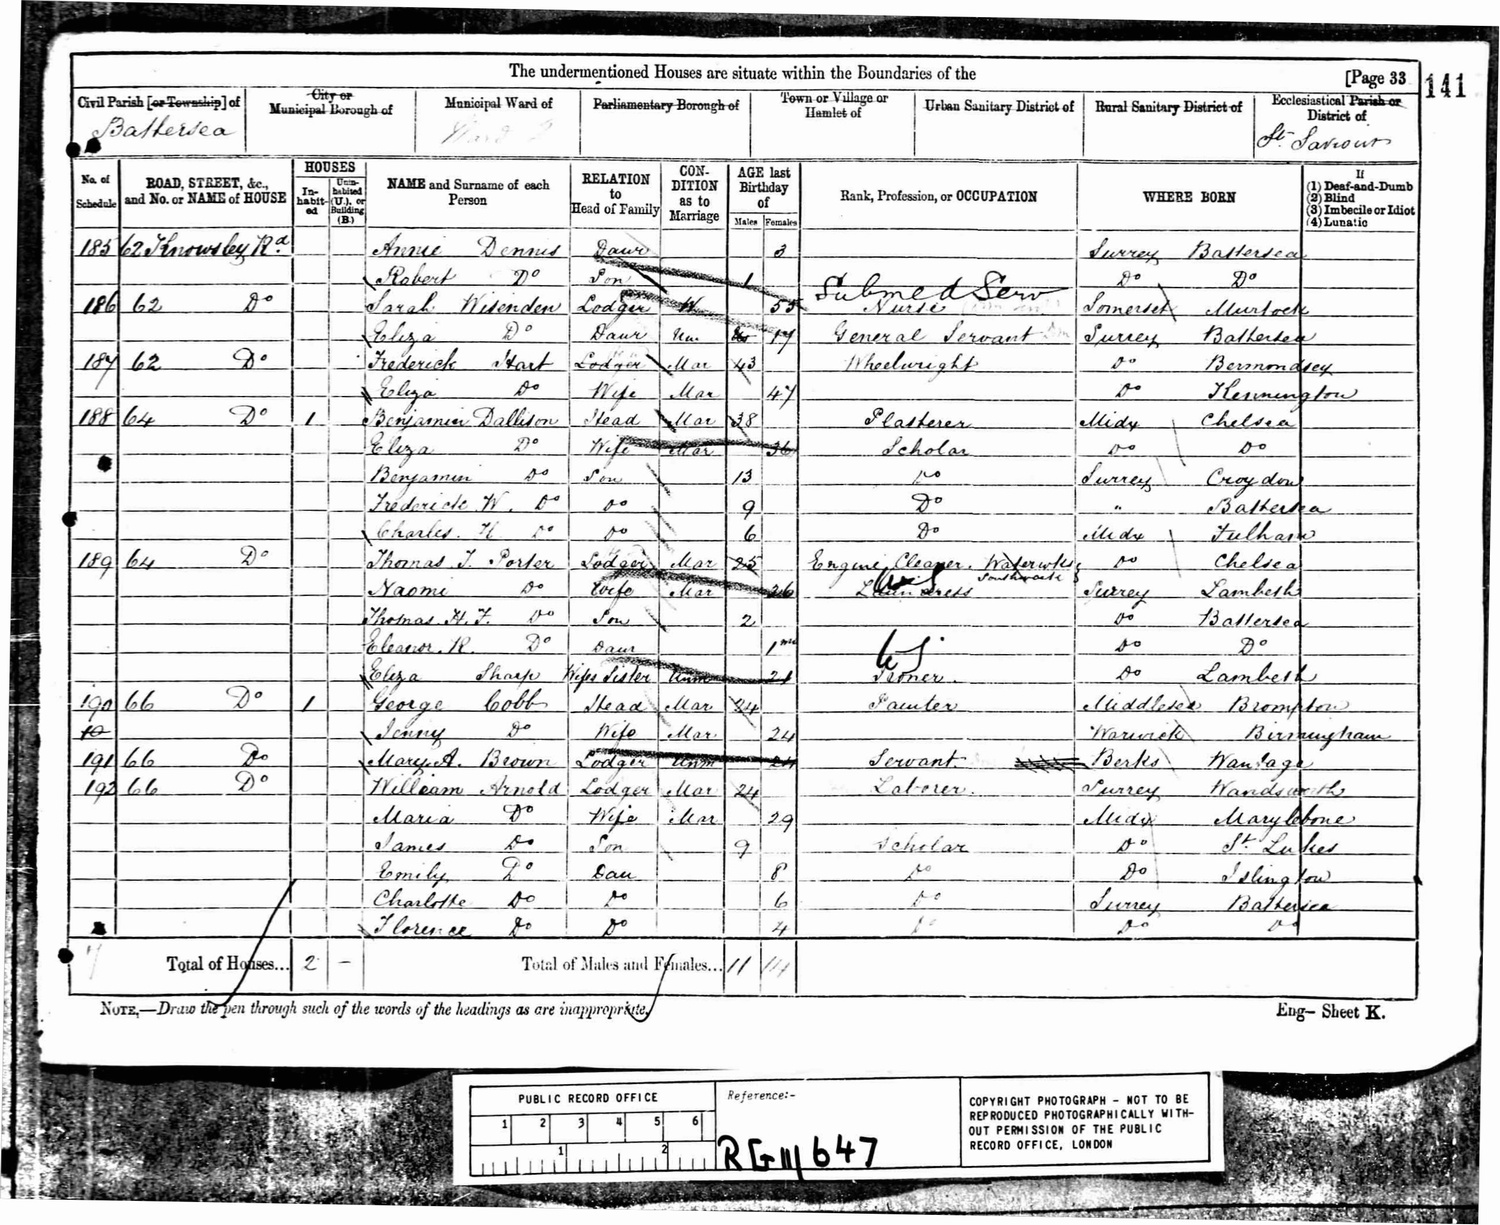 The undermentioned Houses are situate within the Boundaries of the [Page 33
141
Civil Parish [or Township] of Battersea
City or Municipal Borough of
Municipal Ward of
Parliamentary Borough of
Town or Village or Hamlet of
Urban Sanitary District of
Rural Sanitary District of
Ecclesiastical Parish or District of St. Saviour
No. of Schedule
ROAD, STREET, &c., and No. or NAME of HOUSE
HOUSES
In-habit-ed
Unin-habited (U.), or Building (B.)
NAME and Surname of each Person
RELATION to Head of Family
CON-DITION as to Marriage
AGE last Birthday of
Males Females
Rank, Profession, or OCCUPATION
WHERE BORN
If
(1) Deaf-and-Dumb
(2) Blind
(3) Imbecile or Idiot
(4) Lunatic
185 62 Knowsley Rd Annie Dennis Daur 3 Surrey Battersea
Robert Do Son 1 Do Do
186 62 Do Sarah Wisenden Lodger W 55 Submed Serv Nurse Somerset Murtock
Eliza Do Daur Un. 17 General Servant Surrey Battersea
187 62 Do Frederick Hart Lodger Mar 43 Wheelwright Do Bermondsey
Eliza Do Wife Mar 47 Do Kennington
188 64 Do 1 Benjamin Dallison Head Mar 38 Plasterer Midx Chelsea
Eliza Do Wife Mar 36 Scholar Do Do
Benjamin Do Son 13 Do Surrey Croydon
Frederick W. Do Do 9 Do " Battersea
Charles. H. Do Do 6 Do Midx Fulham
189 64 Do Thomas J. Porter Lodger Mar 25 Engine Cleaner. Waterwks Southwark Do Chelsea
Naomi Do Wife Mar 26 Laundress Surrey Lambeth
Thomas H. F. Do Son 2 Do Battersea
Eleanor. R. Do Daur 1 mo Do Do
Eliza Sharp Wifes Sister Unm 21 Ironer. Do Lambeth
190 66 Do 1 George Cobb Head Mar 24 Painter Middlesex Brompton
Jenny Do Wife Mar 24 Warwick Birmingham
191 66 Do Mary. A. Brown Lodger Unm 21 Servant Berks Wantage
192 66 Do William Arnold Lodger Mar 24 Laborer. Surrey Wandsworth
Maria Do Wife Mar 29 Midx Marylebone
James Do Son 9 Scholar Do St. Lukes
Emily Do Dau 8 Do Do Islington
Charlotte Do Do 6 Do Surrey Battersea
Florence Do Do 4 Do Do Do
Total of Houses... 2 – Total of Males and Females... 11 14
NOTE.—Draw the pen through such of the words of the headings as are inappropriate.
Eng– Sheet K.
PUBLIC RECORD OFFICE
1 2 3 4 5 6
1 2
Reference:-
RG 11/647
COPYRIGHT PHOTOGRAPH - NOT TO BE
REPRODUCED PHOTOGRAPHICALLY WITH-
OUT PERMISSION OF THE PUBLIC
RECORD OFFICE, LONDON